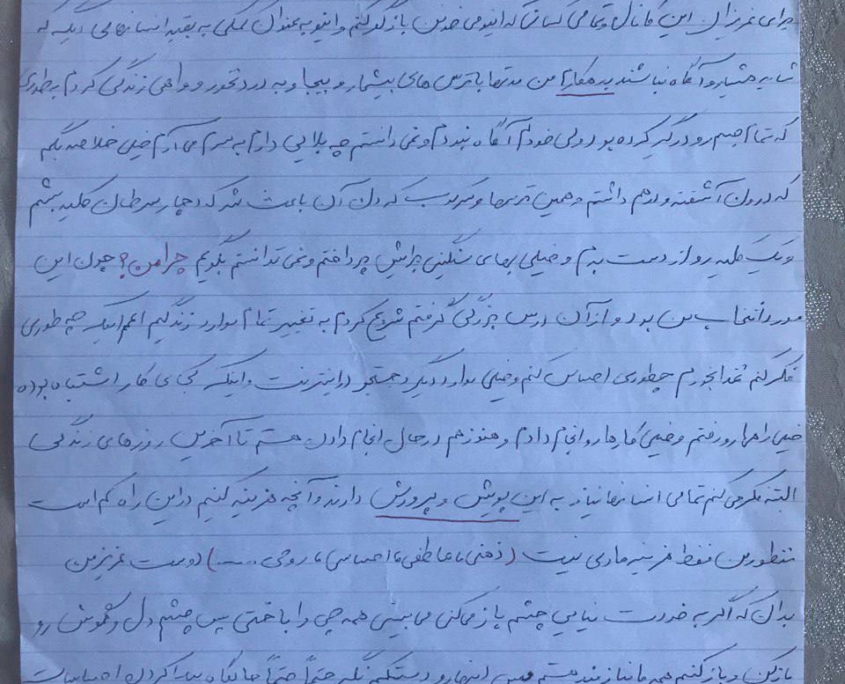 برای عزیزان این کانال و تمامی کسانی که اینو می خونن بازگو کنم و اینو به عنوان کمکی به بقیه انسانهایی دیگه که
شاید هشیار و آگاه نباشند بدهکارم من مدتها با ترس های بیشمار و بیجا و به درد نخور و واهی زندگی کردم بطوری
که تمام جسم رو درگیر کرده بود ولی خودم آگاه نبودم و نمی دانستم چه بلایی دارم به سرم می آرم خیلی خلاصه بگم
که درون آشفته و درهم داشتم و همین ترسها و سرکوب کردن آن باعث شد که دچار سرطان کلیه بشم
و یک کلیه رو از دست بدم و خیلی بهای سنگینی براش پرداختم و نمی تونستم بگویم چرا من؟ چون این
مورد انتخاب من بود و از آن درس بزرگی گرفتم شروع کردم به تغییر تمام موارد زندگیم اعم از اینکه چه طوری
فکر کنم غذا بخورم چطوری احساس کنم و خیلی موارد دیگر و جستجو در اینترنت و اینکه کجای کار اشتباه بوده
خیلی راهها رو رفتم و خیلی کارها رو انجام دادم و هنوز هم در حال انجام دادن هستم تا آخرین روزهای زندگی
البته فکر می کنم تمامی انسانها نیاز به این پویش و پرورش دارند و آنچه هزینه کنیم در این راه کم است
منظور من فقط هزینه مادی نیست (ذهنی، عاطفی، احساسی، روحی .....) دوست عزیز من
بدان که اگر به خودت نیایی چشم باز می کنی می بینی همه چی را باختی پس چشم دل و گوش رو
باز کن و باز کنیم همه ما نیازمند هستیم دست حتماً حتماً پیدا کردن احساسات